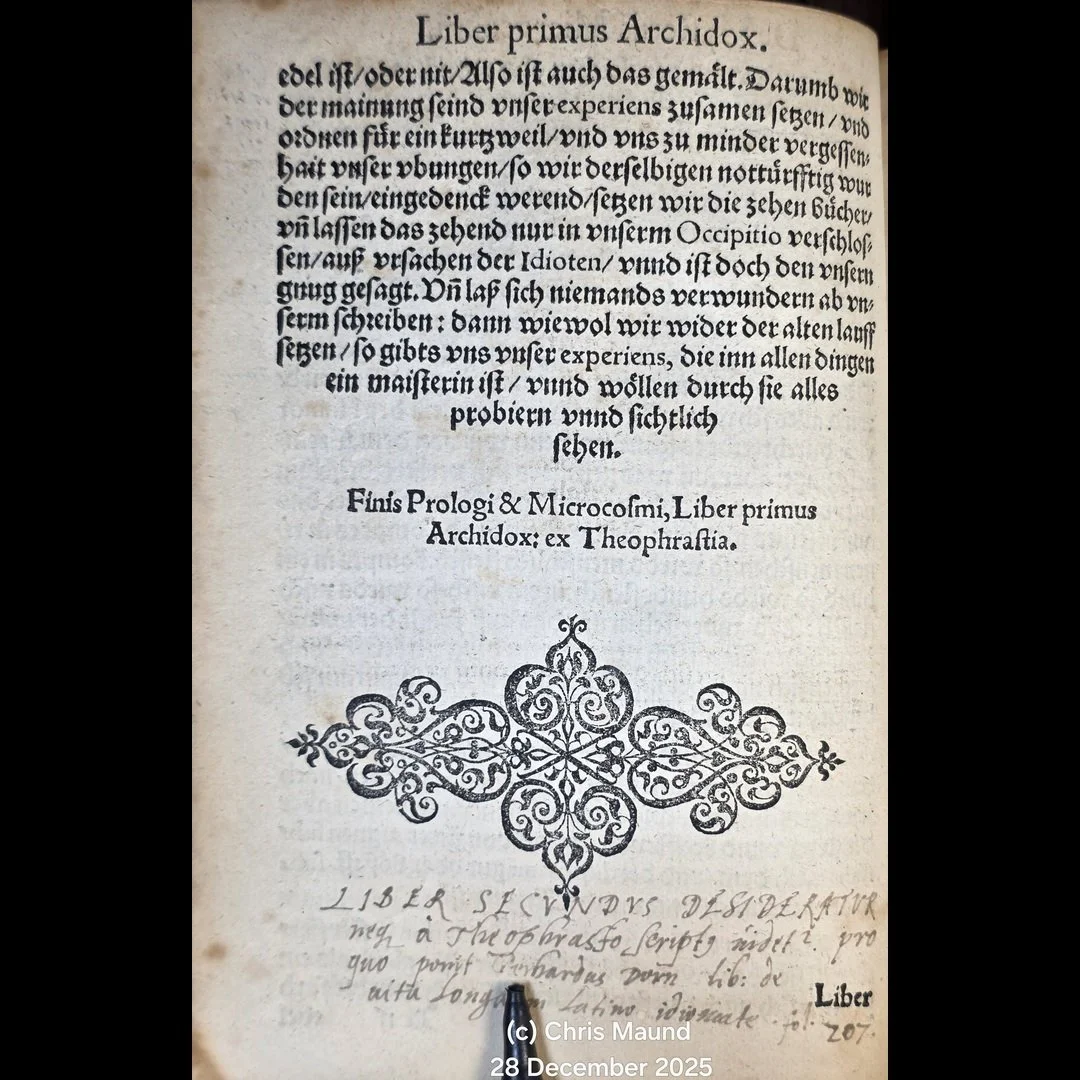 Liber primus Archidox.
edel iſt/oder nit/Alſo iſt auch das gemält. Darumb wir
der mainung ſeind vnſer experiens zuſamen ſetzen / vnd
ordnen für ein kurtzweil/vnd vns zu minder vergeſſen⸗
hait vnſer vbungen/ſo wir derſelbigen nottürfftig wur
den ſein/eingedenck werend/ſetzen wir die zehen Bücher/
vñ laſſen das zehend nur in vnſerm Occipitio verſchloſ⸗
ſen/auß vrſachen der Idioten/ vnnd iſt doch den vnſern
gnug geſagt. Vñ laß ſich niemands verwundern ab vn⸗
ſerm ſchreiben: dann wiewol wir wider der alten lauff
ſetzen/ſo gibts vns vnſer experiens, die inn allen dingen
ein maiſterin iſt / vnnd wöllen durch ſie alles
probiern vnnd ſichtlich
ſehen.
Finis Prologi & Microcoſmi, Liber primus
Archidox: ex Theophraſtia.
LIBER SECVNDVS DESIDERATVR
neq à Theophrasto scripty uidet². pro
quo ponit Gerhardus Dorn lib: de
uita Longa Latino idiomate. fol.
Liber
207.
(c) Chris Maund
28 December 2025